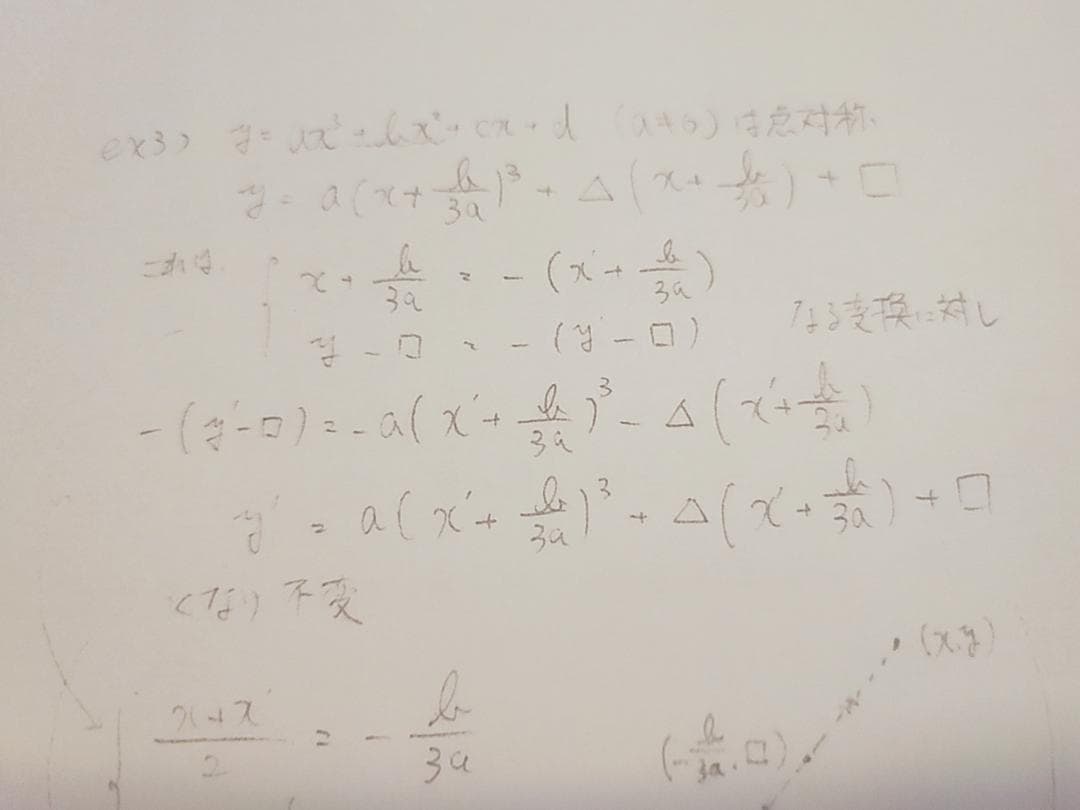 ex3) y = ax³ + bx² + cx + d (a≠0) は点対称
y = a(x + b/3a)³ + △(x + b/3a) + □
これは { x + b/3a = -(x' + b/3a)
y - □ = -(y' - □) なる変換に対し
-(y' - □) = -a(x' + b/3a)³ - △(x' + b/3a)
y' = a(x' + b/3a)³ + △(x' + b/3a) + □
となり 不変
(x+x')/2 = - b/3a
(x, y)
(-b/3a, □)